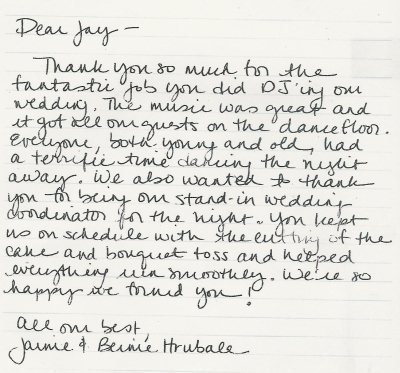 Dear Jay —
Thank you so much for the
fantastic job you did DJ'ing our
wedding. The music was great and
it got all our guests on the dancefloor.
Everyone, both young and old, had
a terrific time dancing the night
away. We also wanted to thank
you for being our stand-in wedding
coordinator for the night. You kept
us on schedule with the cutting of the
cake and bouquet toss and helped
everything run smoothly. We're so
happy we found you!
All our best,
Jaime & Bernie Hrubala